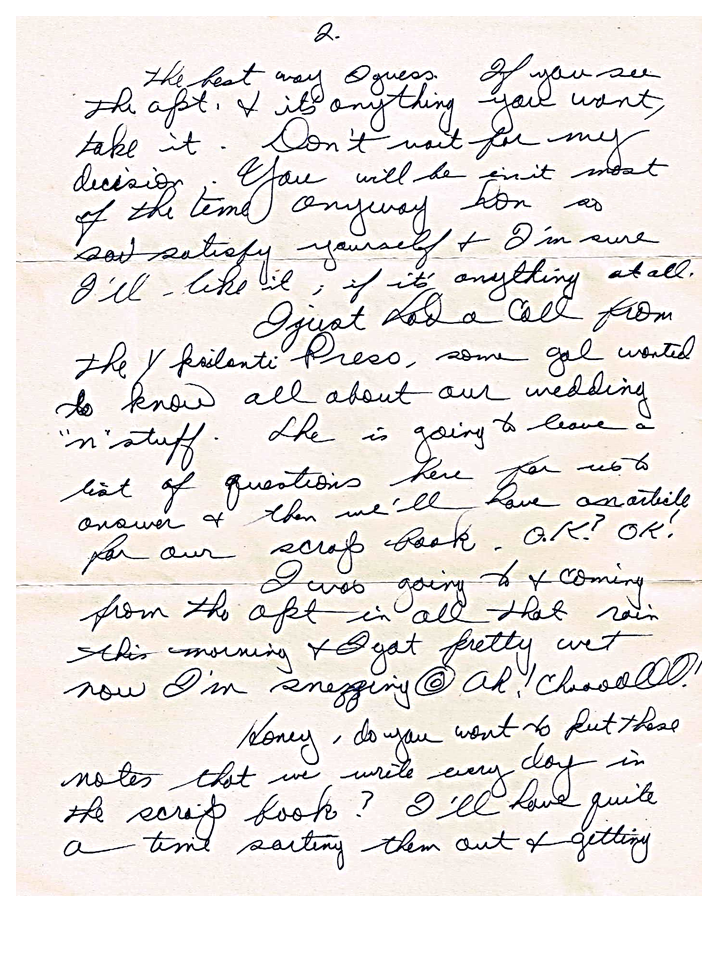 2.
the best way I guess. If you see
the apt. & it's anything you want,
take it. Don't wait for my
decision. You will be in it most
of the time anyway hon so
satisfy yourself & I'm sure
I'll like it, if it's anything at all.
I just had a call from
the Ypsilanti Press, some gal wanted
to know all about our wedding
"n" stuff. She is going to leave a
list of questions here for us to
answer & then we'll have an article
for our scrap book. O.K.? OK!
I was going to & coming
from the apt in all that rain
this morning & I got pretty wet
now I'm snezzing Ah! Choooo!!!
Honey, do you want to put these
notes that we write every day in
the scrap book? I'll have quite
a time sorting them out & getting